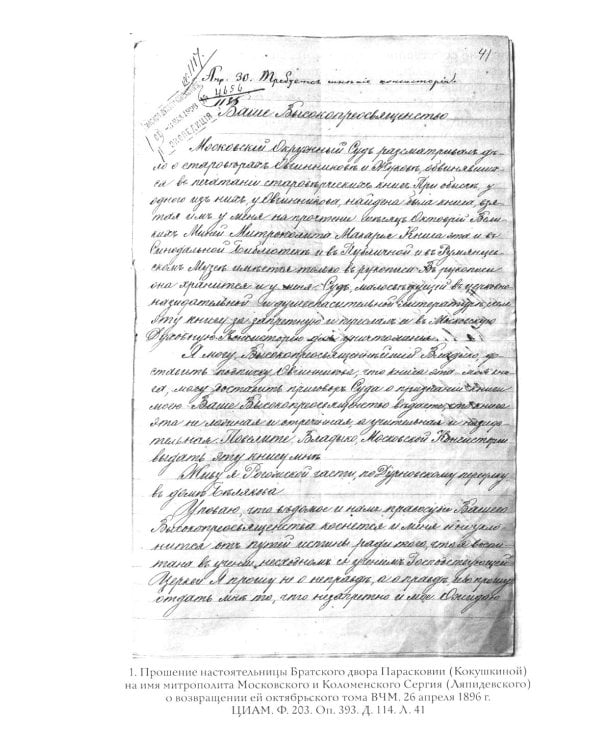 41
Апр. 30. Требуется мнѣніе консисторіи.
№ 4656
Ваше Высокопреосвященство
Московскій Окружный Судъ разсматривалъ дѣ-
ло о старовѣрахъ Овчинниковѣ и обвинявших-
ся въ печатаніи старовѣрческихъ книгъ При обыскѣ, у
одного изъ нихъ, у Овчинникова, найдена была книга, взя-
тая имъ у меня на прочтеніе мѣсяцъ Октоврій Вели-
кихъ Миней Митрополита Макарія Книга эта и въ
Синодальной Библіотекѣ и въ Публичной и въ Румянцев-
скомъ Музеѣ имѣется только въ рукописи Въ рукописи
она хранится и у меня Судъ, малосвѣдущій въ церковно
назидательной и душеспасительной литературѣ,
эту книгу за запретную и прислалъ ее въ Московскую
Духовную Консисторію для уничтоженія
Я могу, Высокопреосвященнѣйшій Владыко, до-
ставить подписку Овчинникова, что книга эта моя
могу доставить приговоръ Суда о признаніи книги
моею Ваше Высокопреосвященство вѣдаете, что книга
эта не ложная и отреченная, а учительная и назида-
тельная Повелите, Владыко, Московской Консисторіи
выдать эту книгу мнѣ
Живу я Рогожской части, по Дурновскому переулку
въ домѣ Бѣлякова
Уповаю, что вѣдомое и намъ правосудіе Вашего
Высокопреосвященства коснется и меня и не укло-
нится отъ путей истины ради того, что я воспи-
тана въ ученіи, несходномъ съ ученіемъ Господствующей
Церкви Я прошу не о неправдѣ, а о правдѣ прошу
отдать мнѣ то, что незапретно и мое Ожидаю
1. Прошение настоятельницы Братского двора Парасковии (Кокушкиной)
на имя митрополита Московского и Коломенского Сергия (Ляпидевского)
о возвращении ей октябрьского тома ВЧМ. 26 апреля 1896 г.
ЦИАМ. Ф. 203. Оп. 393. Д. 114. Л. 41